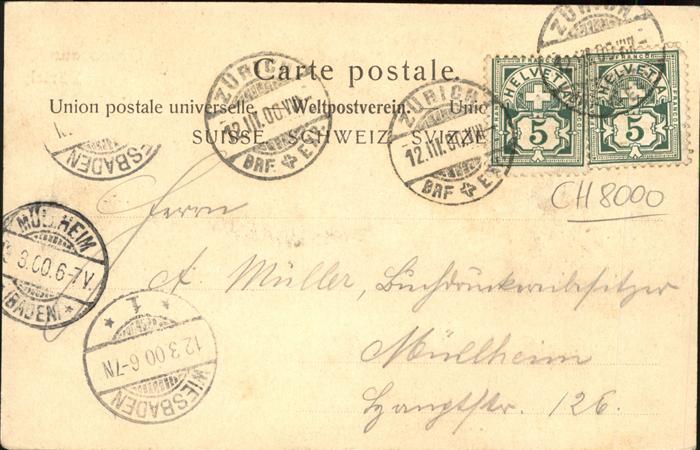 ZÜRICH
12.III.00.VIII
BRF. EXP.
Carte postale.
Union postale universelle. Weltpostverein. Unio
SUISSE SCHWEIZ SVIZ
ZÜRICH
12.III.00.VIII
BRF. EXP.
ZÜRICH
HELVETIA
5
HELVETIA
5
WIESBADEN
CH 8000
Herrn
A. Müller, Buchdruckereibesitzer
Müllheim
Hauptstr. 126.
MÜLLHEIM
3.00.6-7V.
(BADEN)
1
12.3.00.6-7N
WIESBADEN